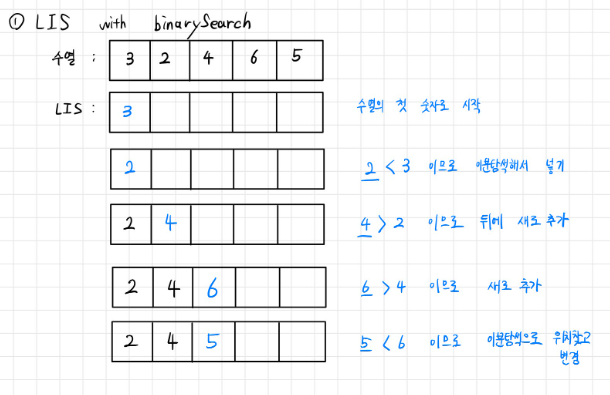 ① LIS with binarySearch
수열 : 3 2 4 6 5
LIS : 3 수열의 첫 숫자로 시작
2 2 < 3 이므로 이분탐색해서 넣기
2 4 4 > 2 이므로 뒤에 새로 추가
2 4 6 6 > 4 이므로 새로 추가
2 4 5 5 < 6 이므로 이분탐색으로 위치찾고
변경